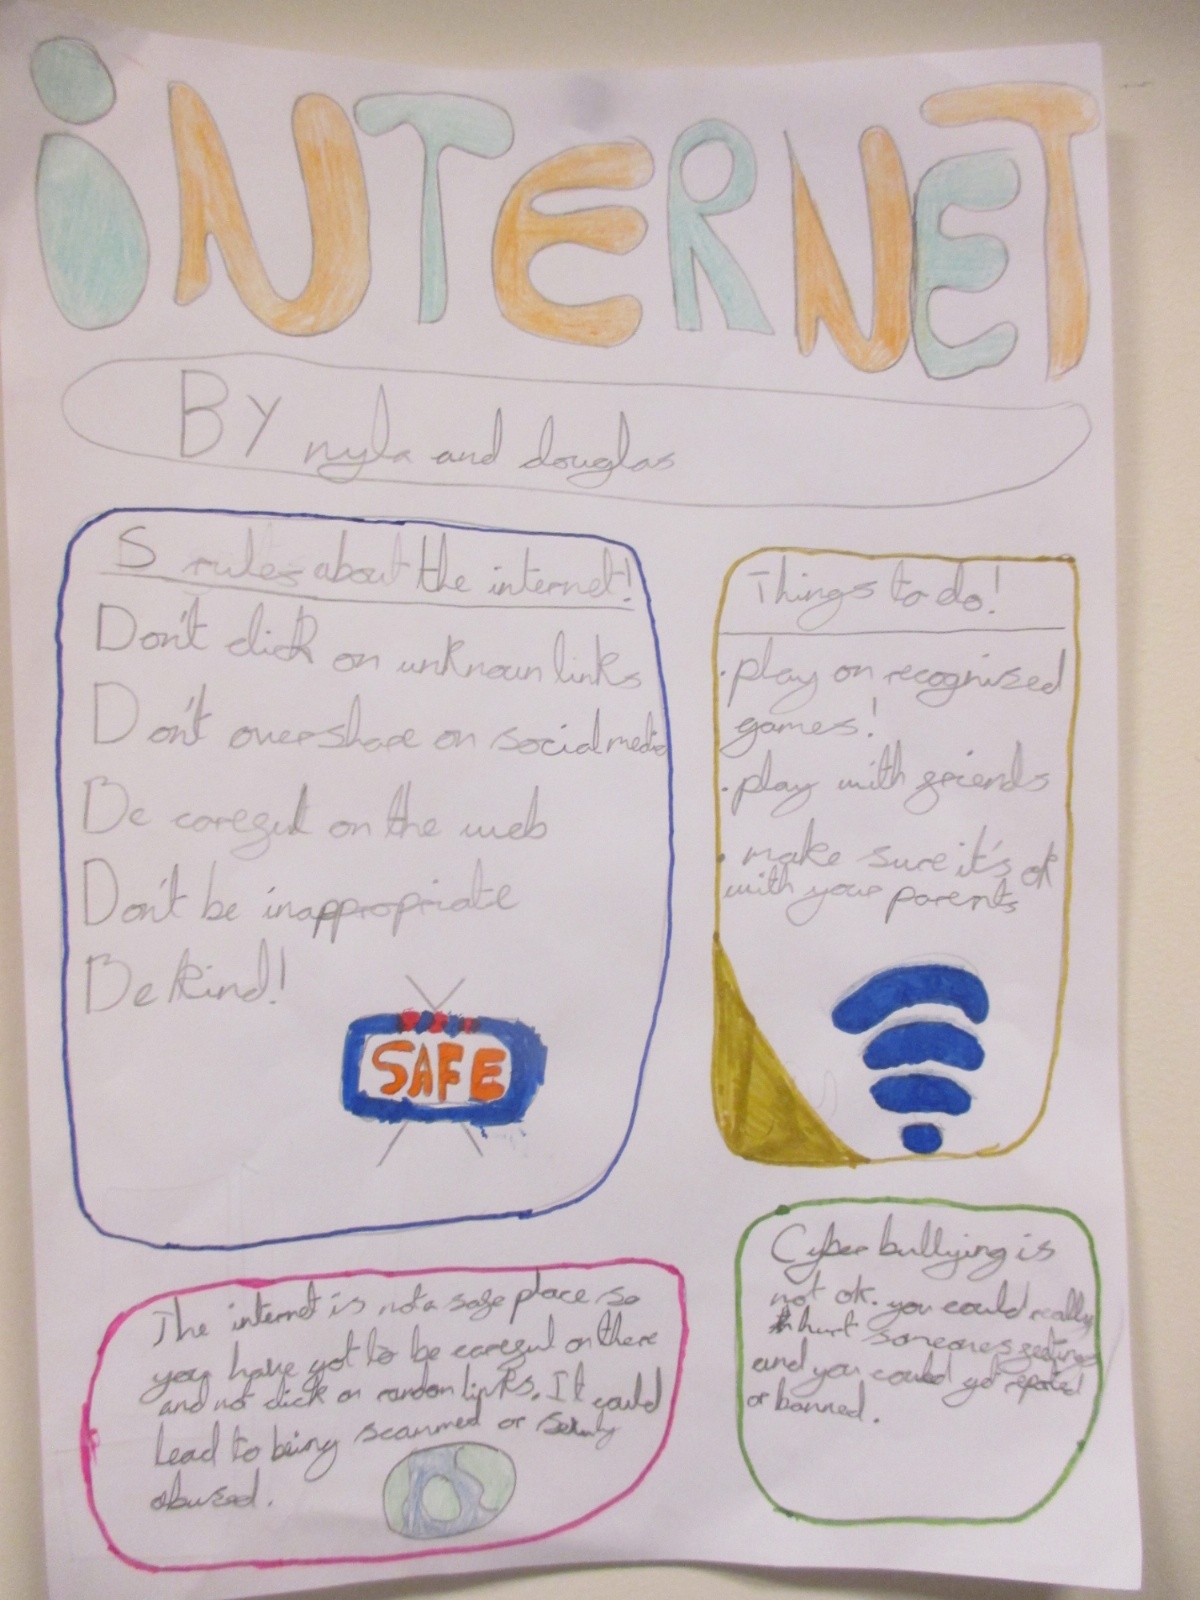 iNTERNET
BY nyla and douglas
5 rules about the internet!
Don't click on unknown links
Don't overshare on social media
Be careful on the web
Don't be inappropriate
Be kind!
SAFE
Things to do!
• play on recognised
games!
• play with friends
• make sure it's ok
with your parents
The internet is not a safe place so
you have got to be careful on there
and not click on random links. It could
lead to being scammed or
abused.
Cyber bullying is
not ok. you could really
hurt someones feelings
and you could get reported
or banned.